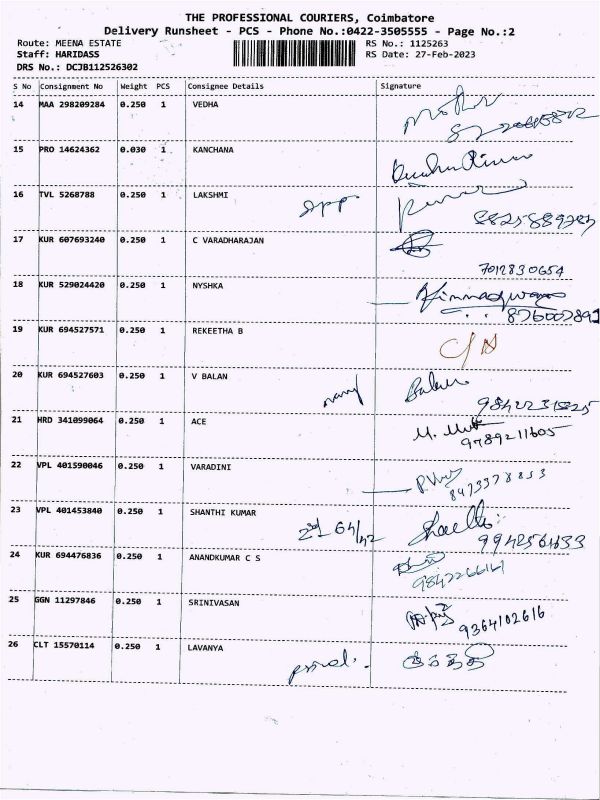 THE PROFESSIONAL COURIERS, Coimbatore
Delivery Runsheet - PCS - Phone No.:0422-3505555 - Page No.:2
Route: MEENA ESTATE RS No.: 1125263
Staff: HARIDASS RS Date: 27-Feb-2023
DRS No.: DCJB112526302
S No Consignment No Weight PCS Consignee Details Signature
14 MAA 298209284 0.250 1 VEDHA Mother
15 PRO 14624362 0.030 1 KANCHANA
16 TVL 5268788 0.250 1 LAKSHMI opp
17 KUR 607693240 0.250 1 C VARADHARAJAN
7012830654
18 KUR 529024420 0.250 1 NYSHKA
19 KUR 694527571 0.250 1 REKEETHA B
20 KUR 694527603 0.250 1 V BALAN
9842231525
21 HRD 341099064 0.250 1 ACE
9789211605
22 VPL 401590046 0.250 1 VARADINI
8473378853
23 VPL 401453840 0.250 1 SHANTHI KUMAR 64/42
9942564633
24 KUR 694476836 0.250 1 ANANDKUMAR C S
9842266161
25 GGN 11297846 0.250 1 SRINIVASAN
9364102616
26 CLT 15570114 0.250 1 LAVANYA